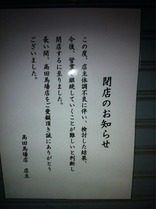 閉店のお知らせ
この度、店主体調不良に伴い、検討した結果、
今後、営業を継続していくことが難しいと判断し
閉店するに至りました。
長い間、高田馬場店をご愛顧頂き誠にありがとう
ございました。
高田馬場店 店主